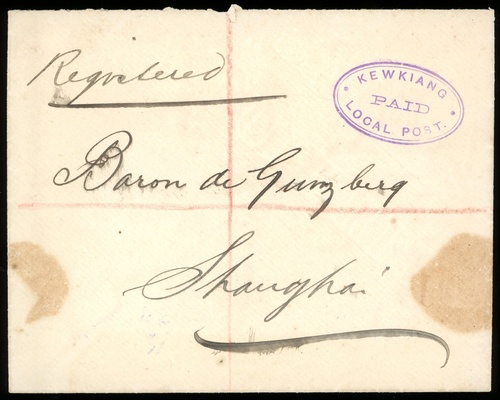 Registered
KEWKIANG
PAID
LOCAL POST.
Baron de Gunzberg
Shanghai